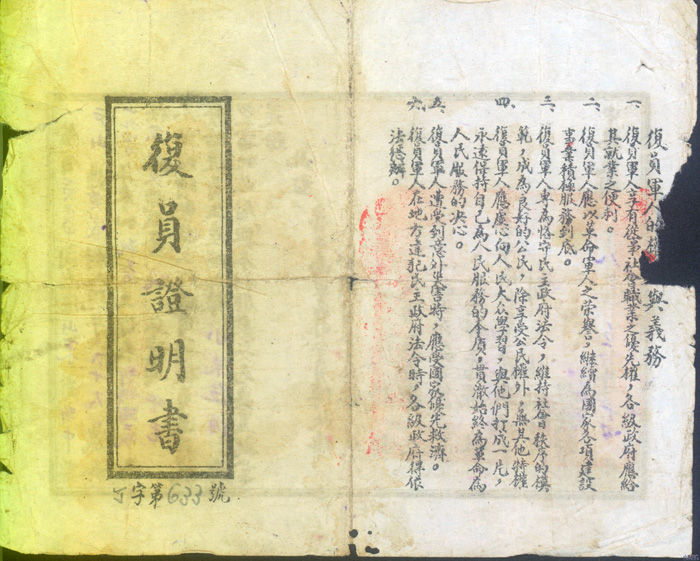 復員軍人的 與義務
一、復員軍人享有從事社會職業之優先權，各級政府應給
其就業之便利。
二、復員軍人應以革命軍人之榮譽繼續為國家各項建設
事業積極服務到底。
三、復員軍人專為恪守民主政府法令，維持社會秩序的模
範，成為良好的公民，除享受公民權外，無其他特權
四、復員軍人應虛心向人民大众學習，與他們打成一片，
永遠保持自己為人民服務的本質，貫澈始終為革命為
人民服務的决心。
五、復員軍人遭受到意外災害時，應受國家優先救濟。
六、復員軍人在地方違犯民主政府法令時，各級政府得依
法懲辦。
復員證明書
丁字第633號